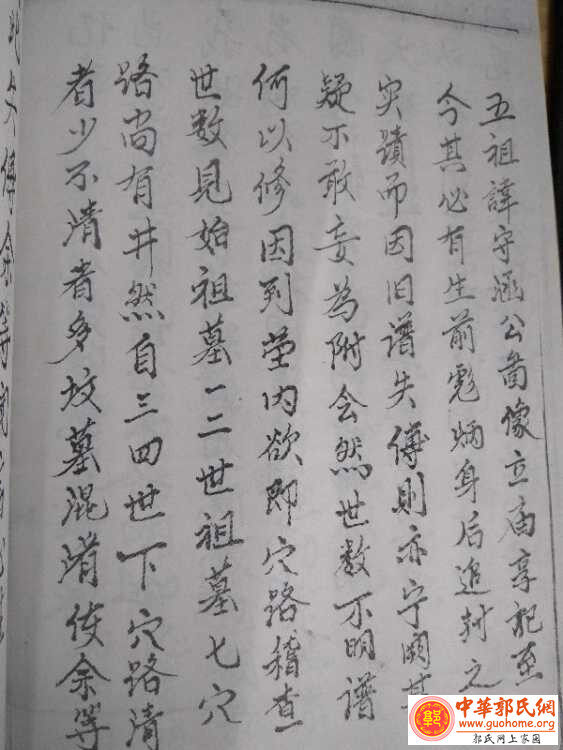 五祖諱守涵公啚像立庙享祀至
今其必有生前彪炳身后追封之
实蹟而因旧谱失傅則亦宁阙其
疑不敢妄為附会然世数不明谱
何以修因到茔内欲即穴路稽查
世数見始祖墓一二世祖墓七穴
路尚有井然自三四世下穴路清
者少不清者多坟墓混淆使余等
中華郭氏網
www.guohome.org
郭氏网上家园